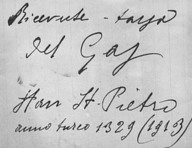 Ricevute - tassa
del Gas
Han St. Pietro
anno turco 1329 (1913)